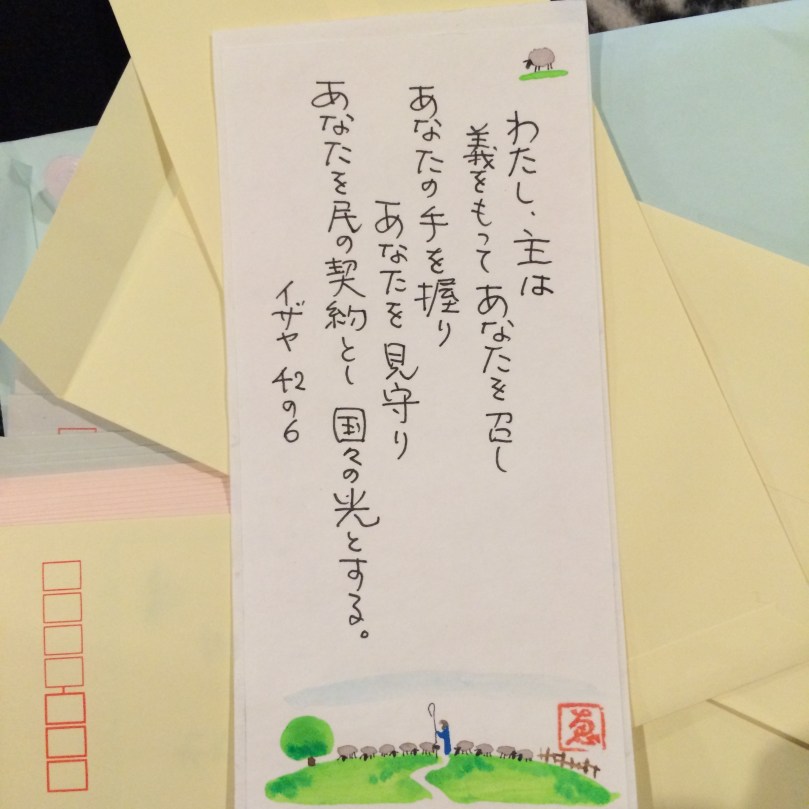 わたし、主は
義をもって あなたを召し
あなたの手を握り
あなたを 見守り
あなたを民の契約とし 国々の光とする。
イザヤ 42の6